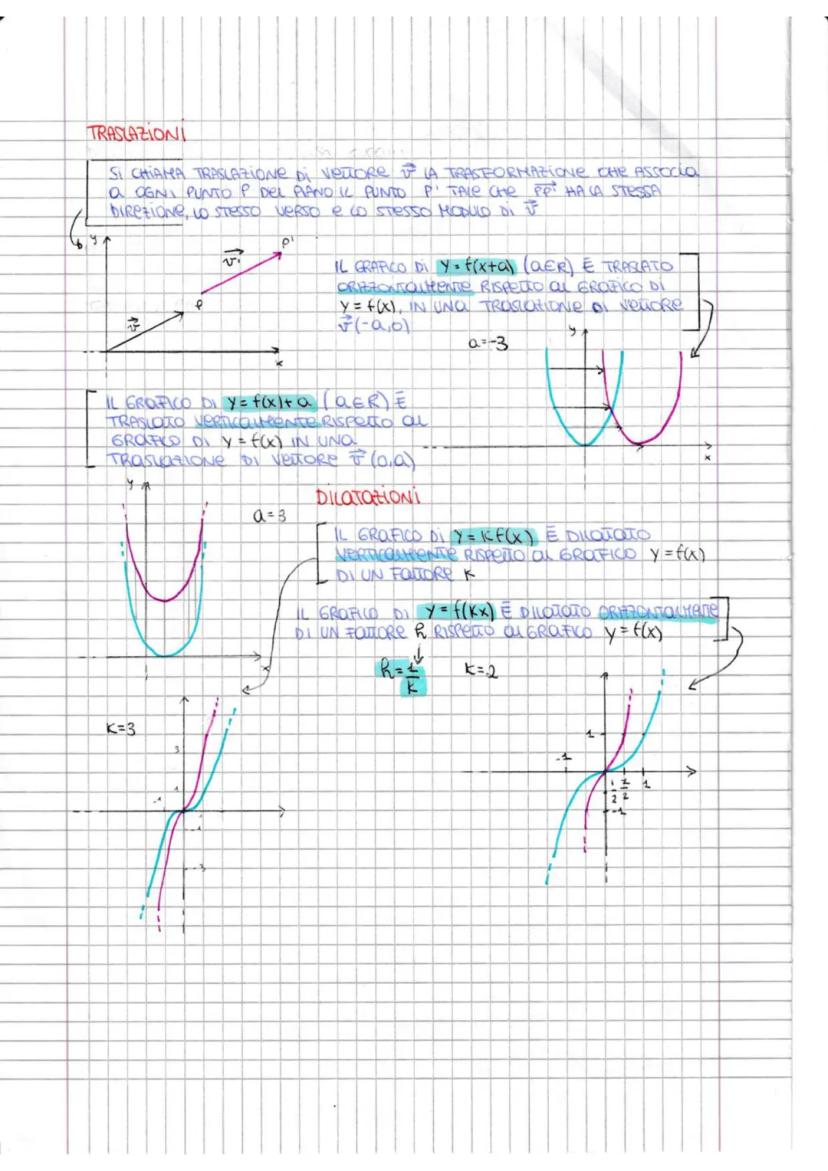 TRASLAZIONI
SI CHIAMA TRASLAZIONE DI VETTORE v⃗ LA TRASFORMAZIONE CHE ASSOCIA
A OGNI PUNTO P DEL PIANO IL PUNTO P' TALE CHE PP'⃗ HA LA STESSA
DIREZIONE, LO STESSO VERSO E LO STESSO MODULO DI v⃗
y
P'
v⃗'
P
v⃗
x
IL GRAFICO DI y = f(x+a) (a∈R) È TRASLATO
ORIZZONTALMENTE RISPETTO AL GRAFICO DI
y = f(x), IN UNA TRASLAZIONE DI VETTORE
v⃗(-a,0)
a=-3
y
x
IL GRAFICO DI y = f(x)+ a (a∈R) È
TRASLATO VERTICALMENTE RISPETTO AL
GRAFICO DI y = f(x) IN UNA
TRASLAZIONE DI VETTORE v⃗ (0,a)
y
a=3
x
DILATAZIONI
IL GRAFICO DI y = K f(x) È DILATATO
VERTICALMENTE RISPETTO AL GRAFICO y = f(x)
DI UN FATTORE K
IL GRAFICO DI y = f(Kx) È DILATATO ORIZZONTALMENTE
DI UN FATTORE h RISPETTO AL GRAFICO y = f(x)
h = 1/K
K=2
K=3
3
1
-1
-1
-3
1
-1
1/2
1
-1